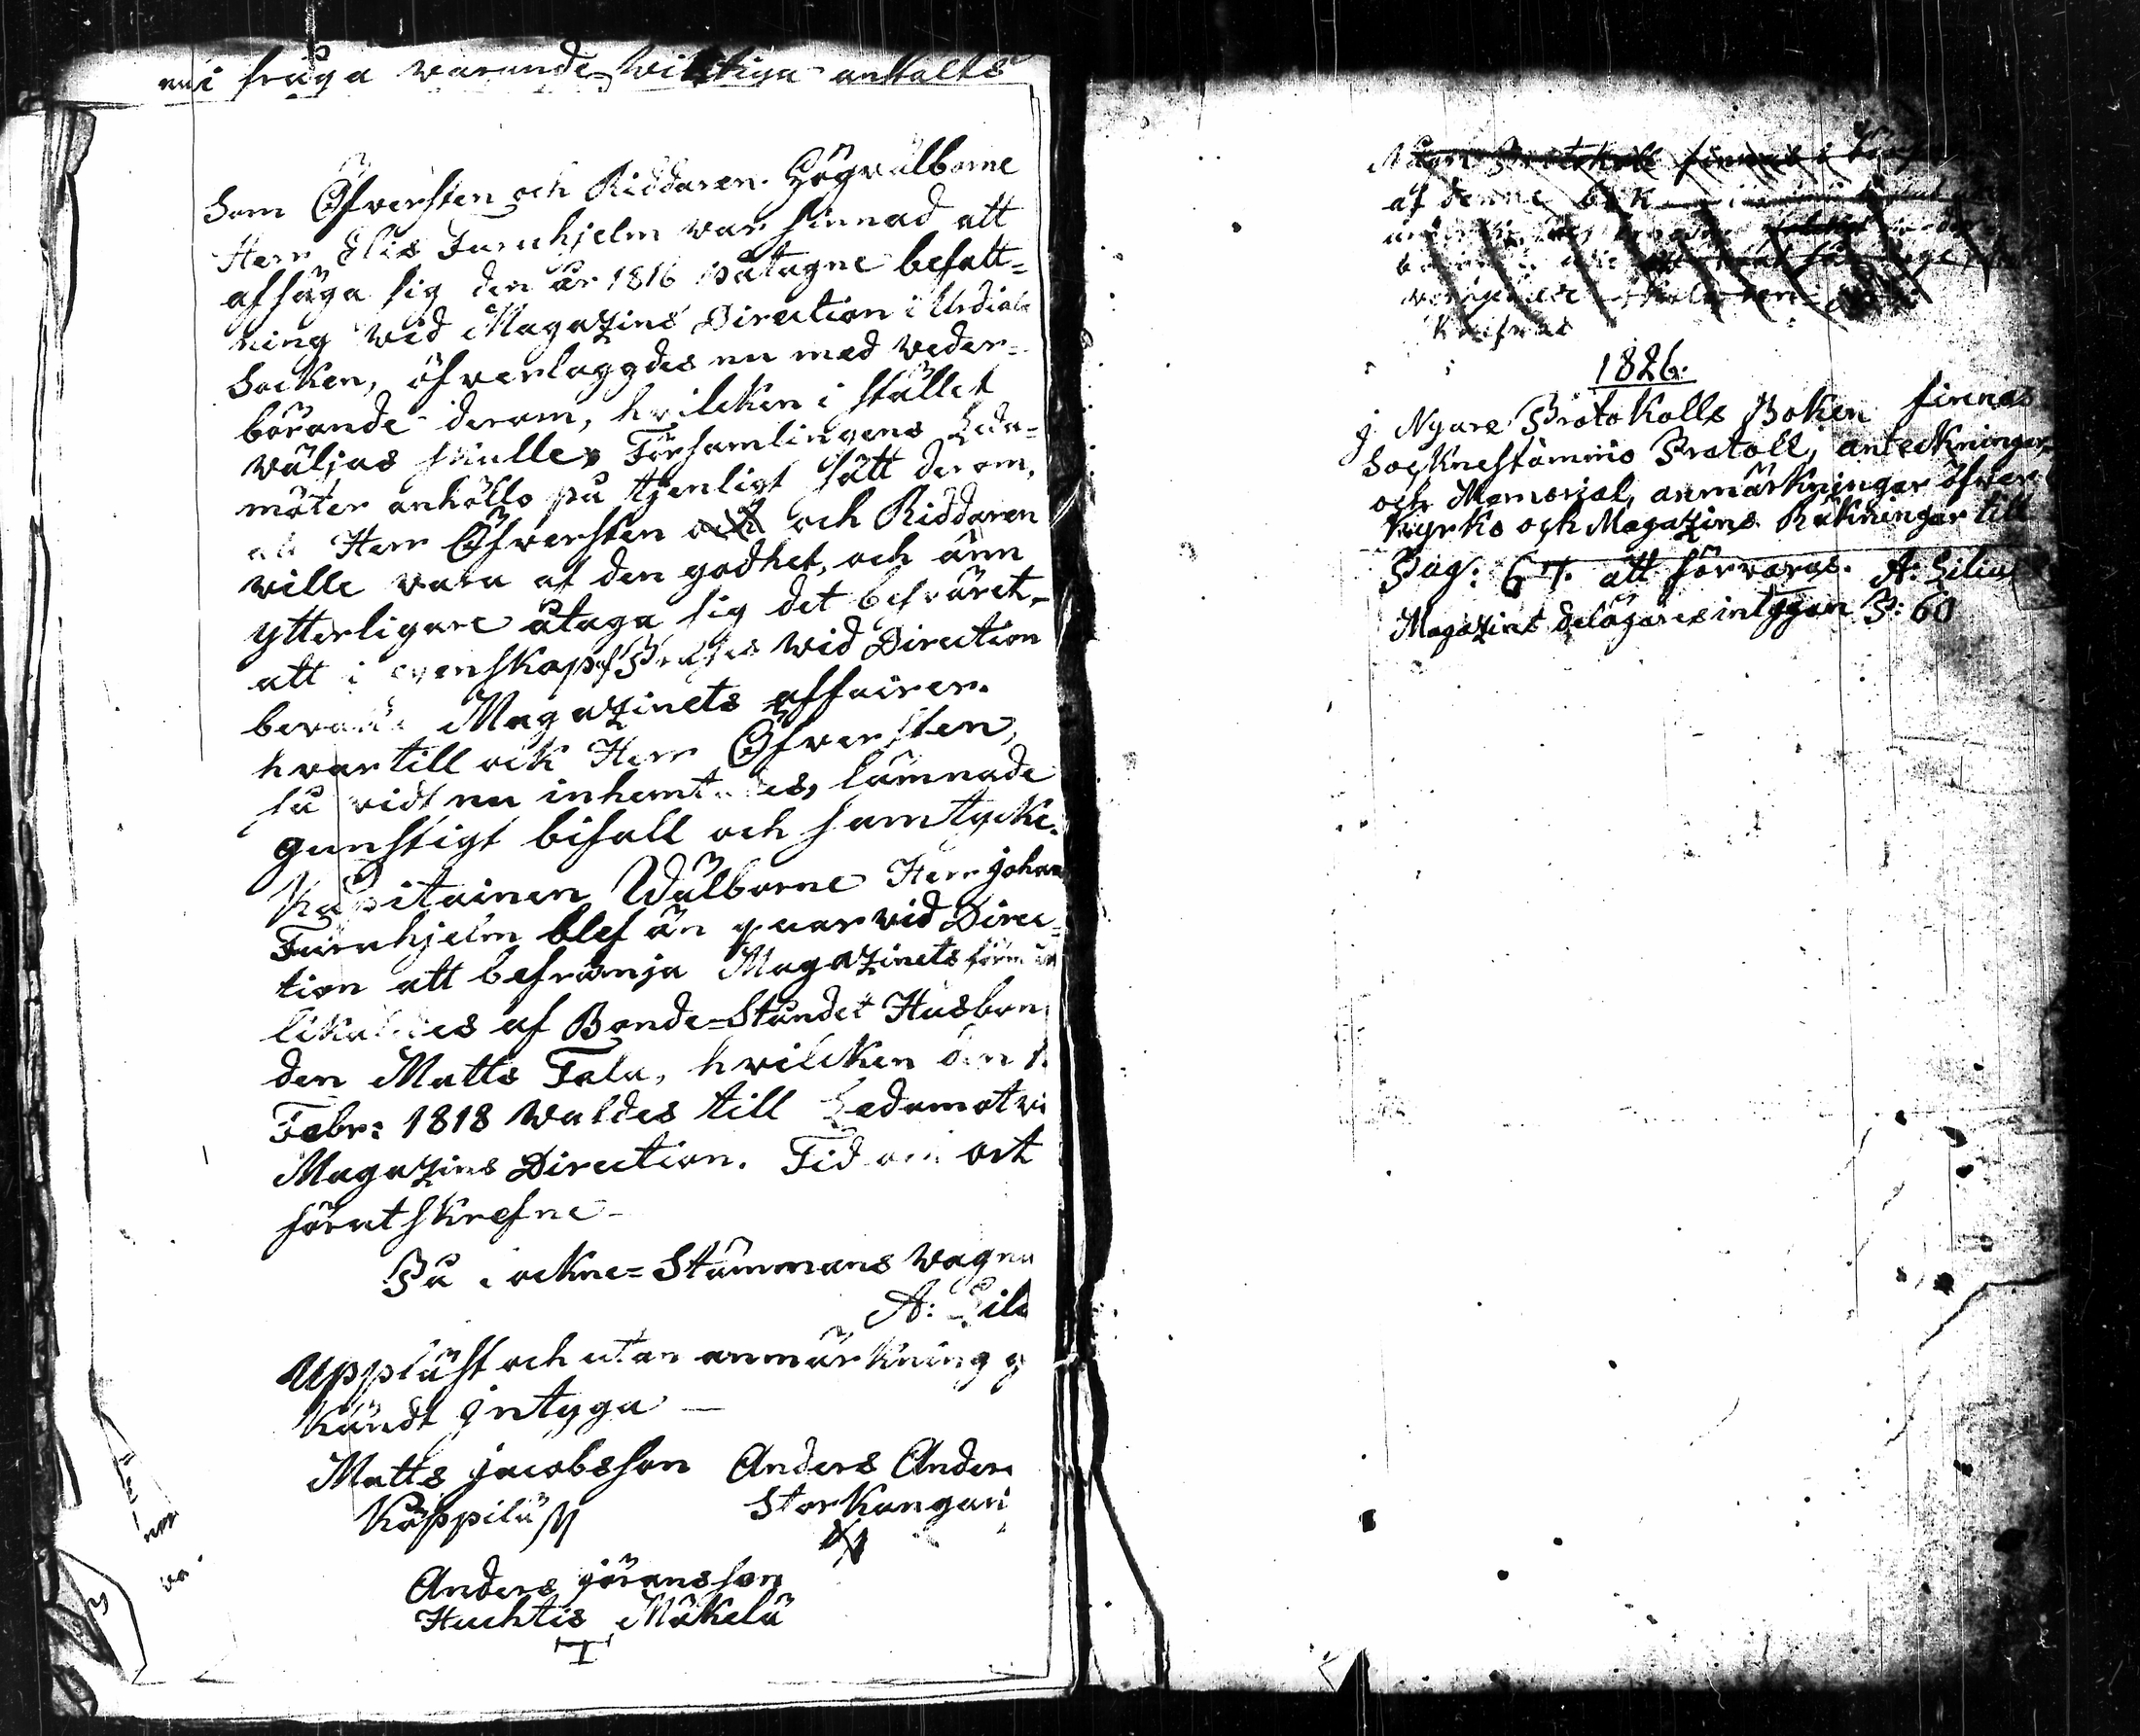 i fråga warande wiktiga anstalts
Som Öfversten och Riddaren Högvälborne
Herr Elis Furuhjelm war sinnad att
afsäga sig den år 1816 påtagne befatt=
ning wid Magazins Direction i Urdiala
Socken, öfverlaggdes nu med weder=
börande derom, hvilcken i stället
väljas skulle; Församlingens Leda=
möter anhöllo på tjenligt sätt derom,
Herr Öfversten och Riddaren
ville vara af den godhet, och änn
ytterligare åtaga sig det besväret,
att i egenskap af Præses wid Direction
Magazinets affairer.
hvartill ock Herr Öfversten,
så vidt nu inhemtades, lämnade
gunstigt bifall och samtycke.
Kapitainen Wälborne Herr Johan
Furuhjelm blef än quar vid Direc=
tion att befrämja Magazinets
likaledes af Bonde=Ståndet Husbon
den Matts Tala, hvilcken den 1.
Febr: 1818 waldes till Ledamot vi
Magazins Direction. Tid och ort
förutskrefne
På Sockne=Stämmans wägna
A: Lile
Uppläst och utan anmärkning g
kändt Intyga
Matts Jacobsson Anders Anders
Käppilä Storkangari
Anders Göransson
Huchtis Mäkelä
Någre Protokoll finnas i
af denne bok
1826.
J Nyare Protokolls Boken finnas
Socknestämmo Protoll, anteckningar,
och Memorial, anmärkningar öfver
Kyrko och Magazins Räkningar till
Pag: 67. att förvaras. A: Lilius
Magazins delägares intygan P: 60